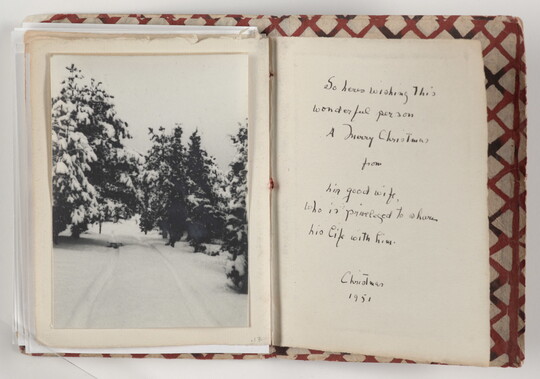 So heres wishing This
wonderful person
A Merry Christmas
from
his good wife,
who is priveleged to share
his life with him.
Christmas
1951